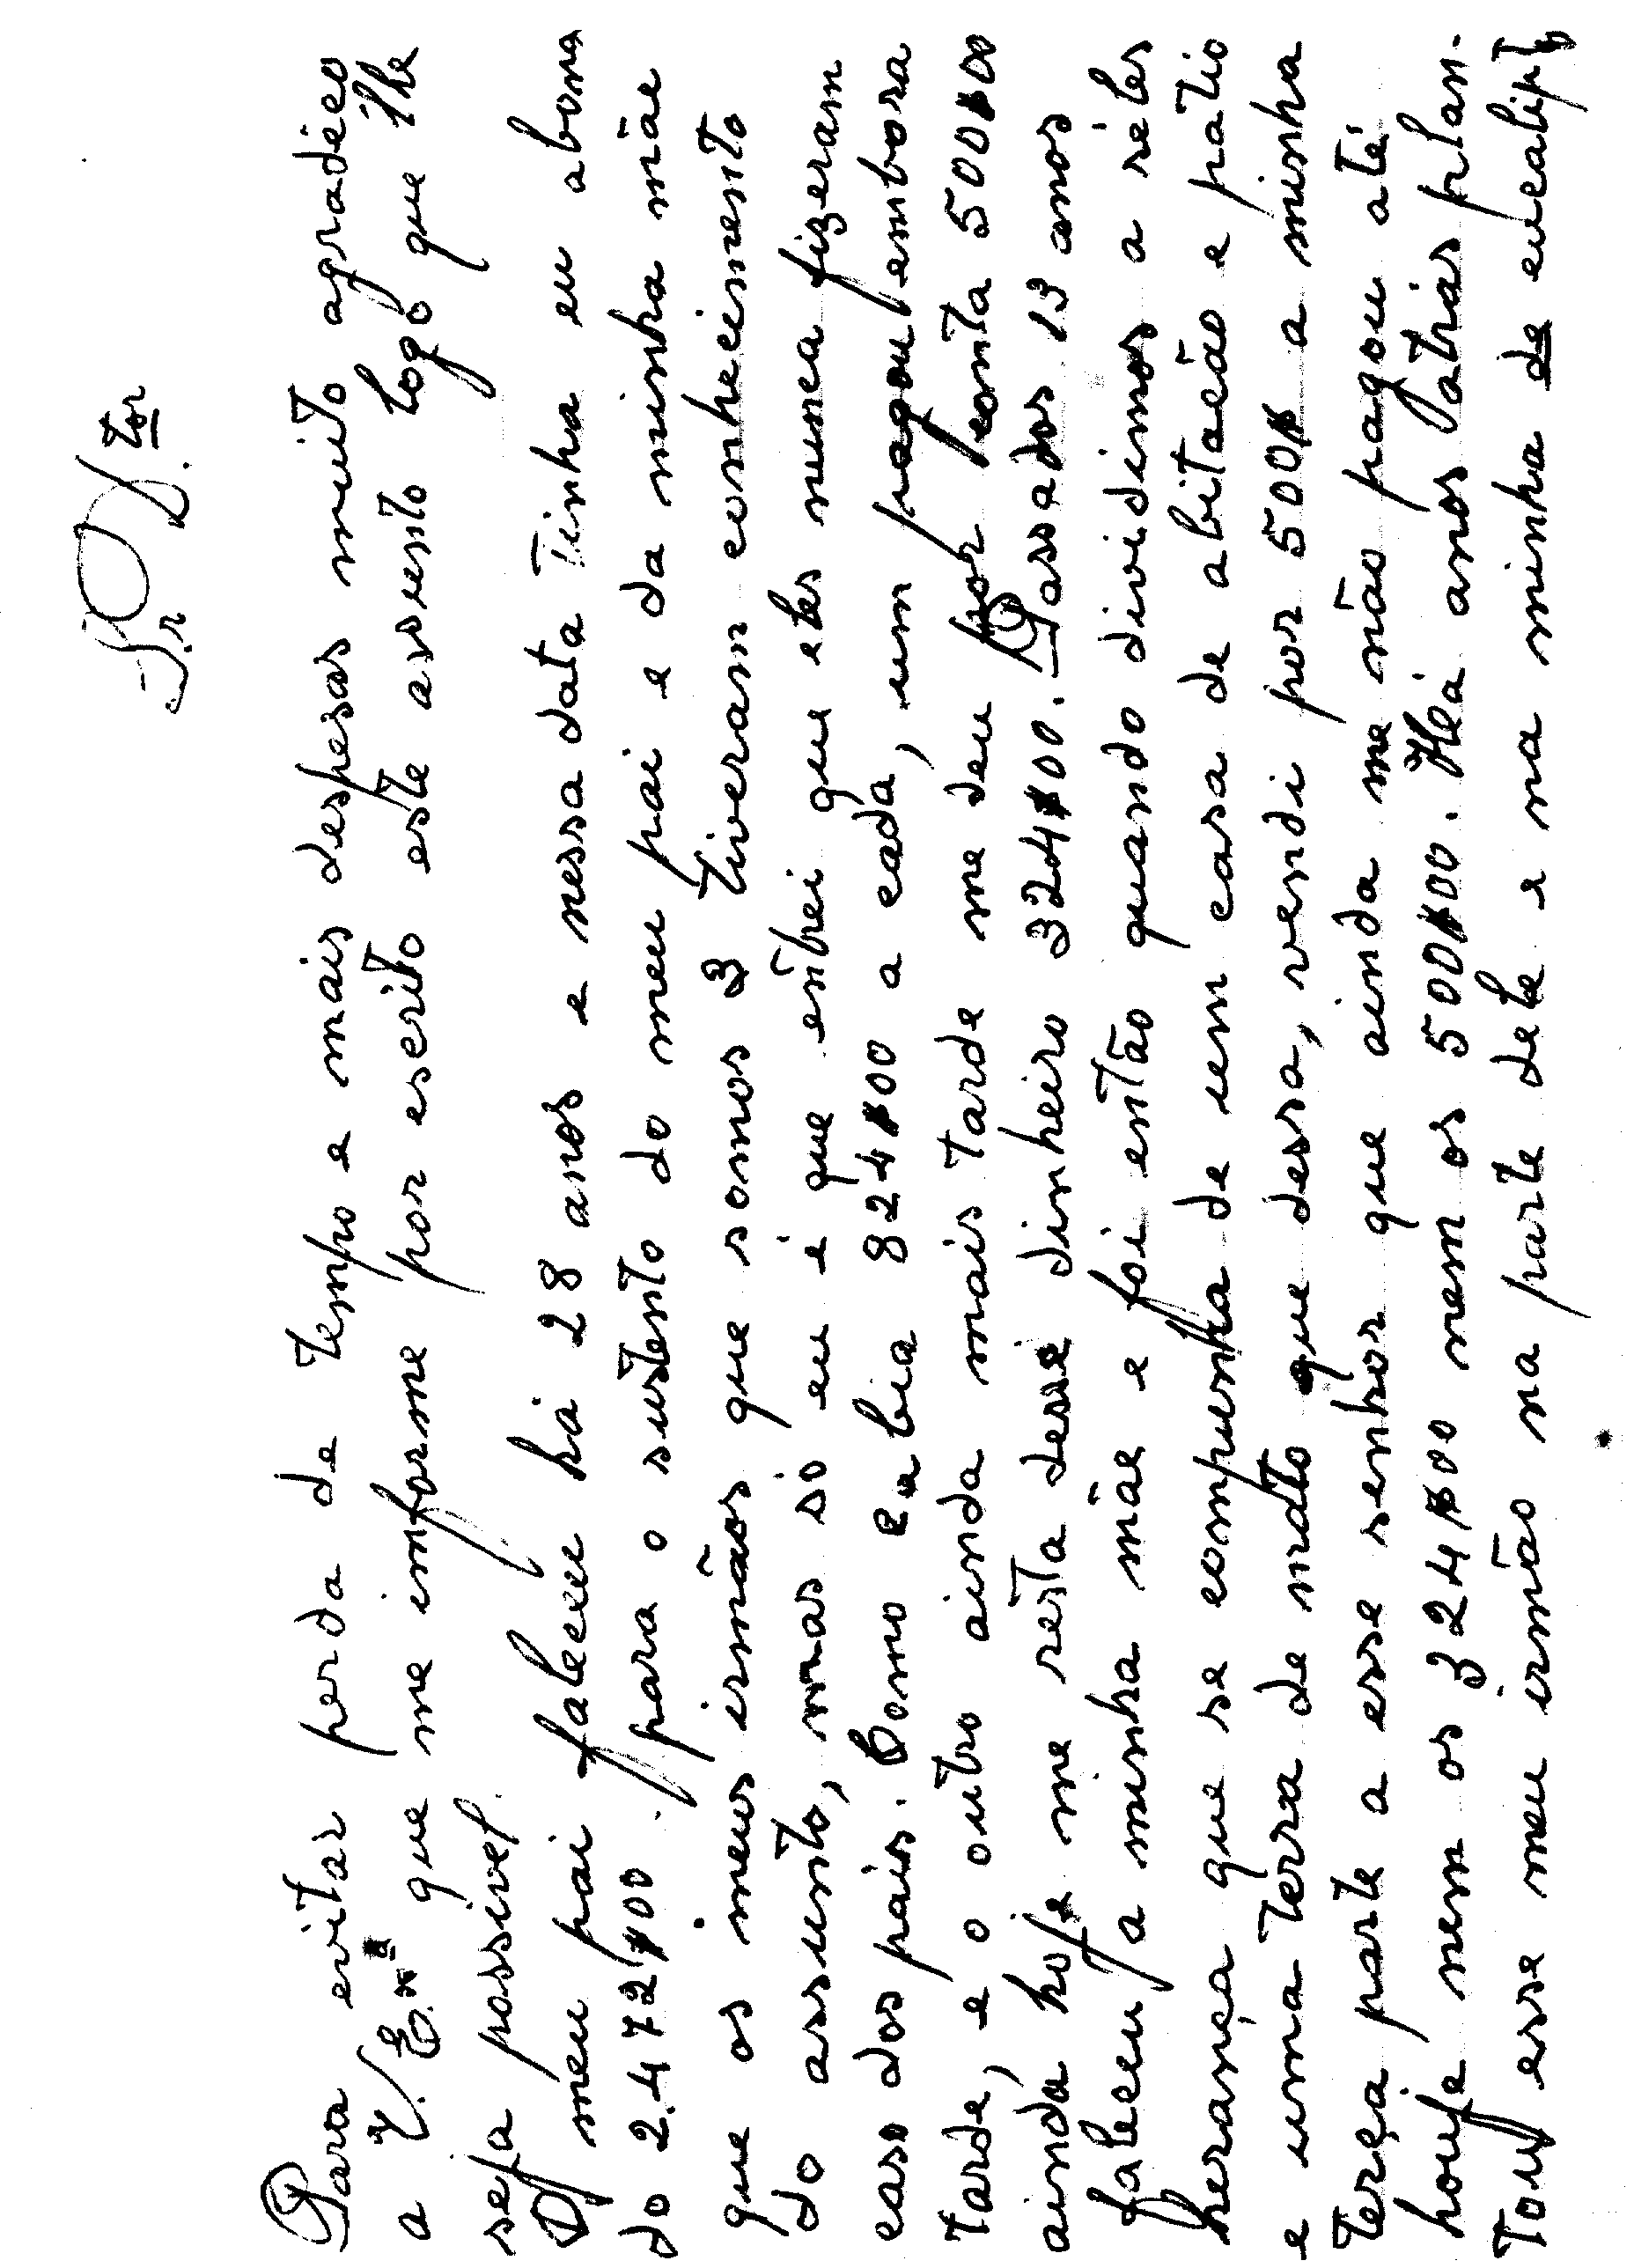 Sr. Dtor
Para evitar perda de tempo e mais despesas muito agradéco
a V. Ex.a que me informe por escrito este assunto logo que lhe
seja possivel.
O meu pai faleceu há 28 anos e nessa data tinha eu abona
do 2.472$00 para o sustento do meu pai e da minha mãe
que os meus irmãos que somos 3 tiveram conhecimento
do assunto, mas só eu é que entrei que eles nunca fizeram
caso dos pais. Como cabia 824$00 a cada, um pagou embora
tarde, e o outro ainda mais tarde me deu por conta 500$00
ainda hoje me resta desse dinheiro 324$00. Passados 13 anos
faleceu a minha mãe e foi então quando dividimos a réles
herança que se compunha de um casa de abitacão e patio
e uma terra de mato que dessa, vendi por 500$ a minha
terça parte a esse senhor que ainda me não pagou até
houje nem os 324$00 nem os 500$00. Há anos atrás plan-
tou esse meu irmão na parte dele e na minha de eucalipto